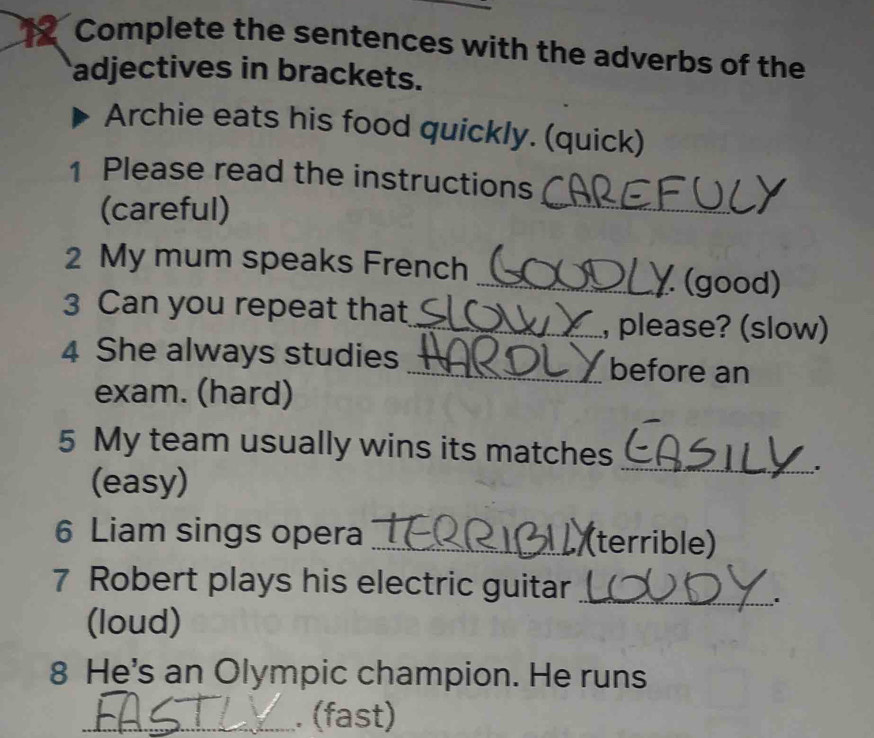 12 Complete the sentences with the adverbs of the
adjectives in brackets.
▶ Archie eats his food quickly. (quick)
1 Please read the instructions CAREFULY
(careful)
2 My mum speaks French GOUDLY. (good)
3 Can you repeat that SLOWLY, please? (slow)
4 She always studies HARDLY before an
exam. (hard)
5 My team usually wins its matches EASILY.
(easy)
6 Liam sings opera TERRIBILY. (terrible)
7 Robert plays his electric guitar LOUDY.
(loud)
8 He's an Olympic champion. He runs
FASTLY. (fast)